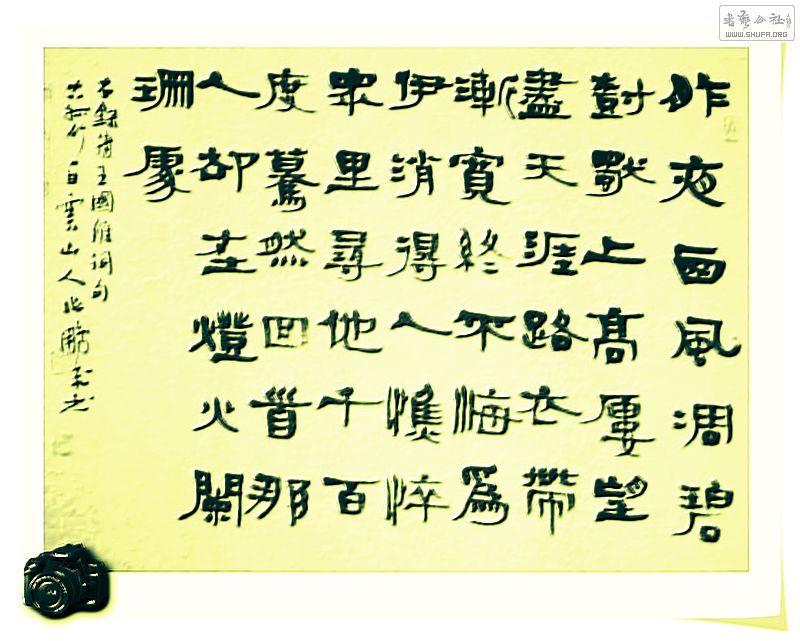 昨夜西風凋碧
樹獨上高樓望
盡天涯路衣帶
漸寬終不悔為
伊消得人憔悴
眾里尋他千百
度驀然回首那
人卻在燈火闌
珊處
右錄清王國維詞句
白雲山人
書藝公社
WWW.SHUFA.ORG